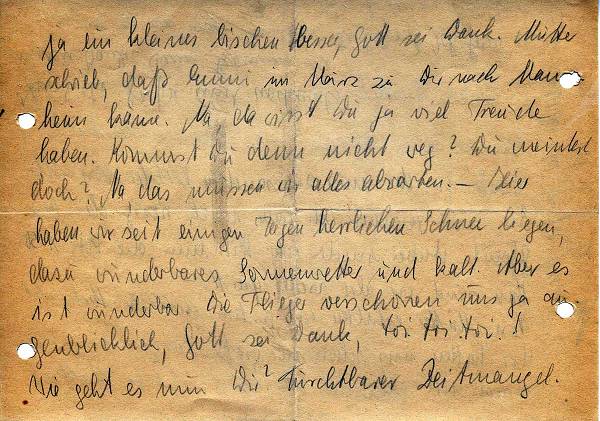 ja ein kleines bischen besser, Gott sei Dank. Mutter
schrieb, daß Emmi im März zu Dir nach Mann-
heim käme. Na, da wirst Du ja viel Freude
haben. Kommst Du denn nicht weg? Du meintest
doch? Na, das müssen wir alles abwarten. – Hier
haben wir seit einigen Tagen herrlichen Schnee liegen,
dazu wunderbares Sonnenwetter und kalt. Aber es
ist wunderbar. Die Flieger verschonen uns ja au-
genblicklich, Gott sei Dank, toi toi toi!
Wie geht es nun Dir? Furchtbarer Zeitmangel.